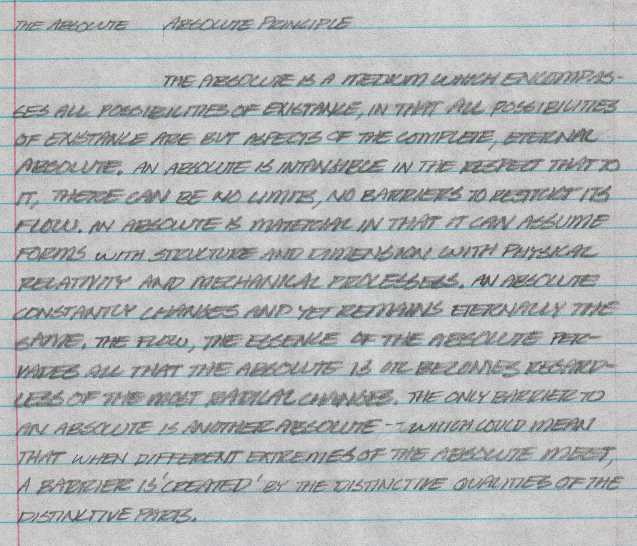 THE ABSOLUTE ABSOLUTE PRINCIPLE
THE ABSOLUTE IS A MEDIUM WHICH ENCOMPAS-
SES ALL POSSIBILITIES OF EXISTANCE, IN THAT ALL POSSIBILITIES
OF EXISTANCE ARE BUT ASPECTS OF THE COMPLETE, ETERNAL
ABSOLUTE. AN ABSOLUTE IS INTANGIBLE IN THE RESPECT THAT TO
IT, THERE CAN BE NO LIMITS, NO BARRIERS TO RESTRICT ITS
FLOW. AN ABSOLUTE IS MATERIAL IN THAT IT CAN ASSUME
FORMS WITH STRUCTURE AND DIMENSION WITH PHYSICAL
RELATIVITY AND MECHANICAL PROCESSESS. AN ABSOLUTE
CONSTANTLY CHANGES AND YET REMAINS ETERNALLY THE
SAME. THE FLOW, THE ESSENCE OF THE ABSOLUTE PER-
VADES ALL THAT THE ABSOLUTE IS OR BECOMES REGARD-
LESS OF THE MOST RADICAL CHANGES. THE ONLY BARRIER TO
AN ABSOLUTE IS ANOTHER ABSOLUTE -- WHICH COULD MEAN
THAT WHEN DIFFERENT EXTREMES OF THE ABSOLUTE MEET,
A BARRIER IS 'CREATED' BY THE DISTINCTIVE QUALITIES OF THE
DISTINCTIVE PARTS.